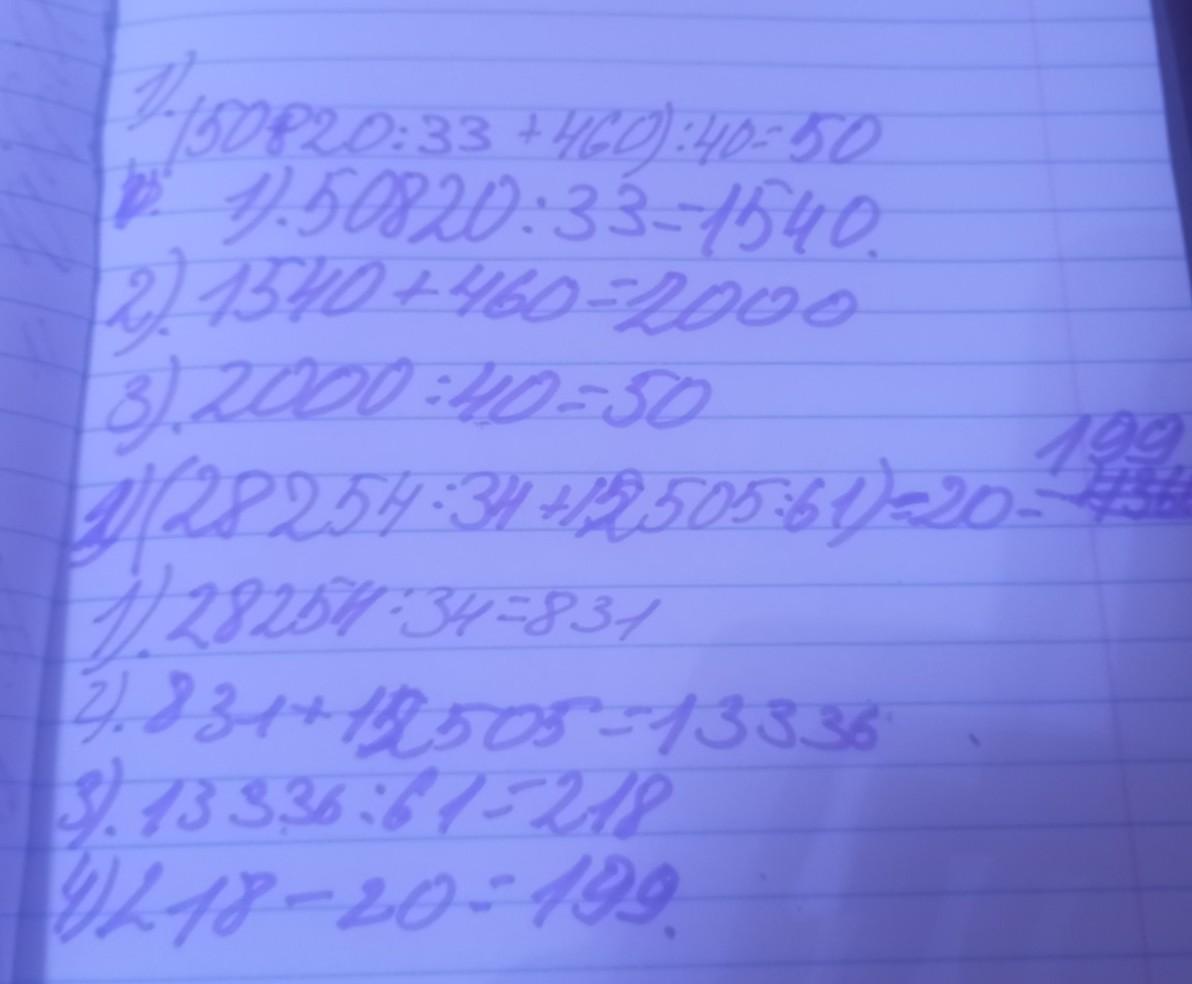 1).
(50820:33 + 460):40=50
1). 50820:33=1540.
2). 1540+460=2000
3). 2000:40=50
199
2)(28254:34+12505:61)=20=
1). 28254:34=831
2). 831+12505=13336
3). 13336:61=218
4) 218-20=199.